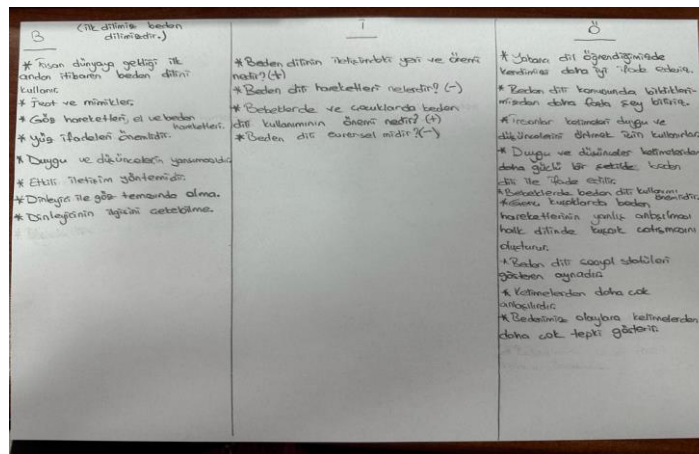 B (ilk dilimiz beden
dilimizdir.)
* İnsan dünyaya geldiği ilk
andan itibaren beden dilini
kullanır.
* Jest ve mimikler.
* Göz hareketleri, el ve beden
hareketleri.
* Yüz ifadeleri önemlidir.
* Duygu ve düşüncelerin yansımasıdır.
* Etkili iletişim yöntemidir.
* Dinleyici ile göz temasında olma.
* Dinleyicinin ilgisini çekebilme.
İ
* Beden dilinin iletişimdeki yeri ve önemi
nedir? (+)
* Beden dili hareketleri nelerdir? (-)
* Bebeklerde ve çocuklarda beden
dili kullanımının önemi nedir? (+)
* Beden dili evrensel midir? (-)
Ö
* Yabancı dil öğrendiğimizde
kendimizi daha iyi ifade ederiz.
* Beden dili konusunda bildikleri-
mizden daha fazla şey biliriz.
* İnsanlar kelimeleri duygu ve
düşüncelerini örtmek için kullanırlar.
* Duygu ve düşünceler kelimelerden
daha güçlü bir şekilde beden
dili ile ifade edilir.
* Bebeklerde beden dili kullanımı
önemlidir.
* kuşaklarda beden
hareketlerinin yanlış anlaşılması
halk dilinde kuşak çatışmasını
oluşturur.
* Beden dili sosyal statüleri
gösteren aynadır.
* Kelimelerden daha çok
anlaşılırdır.
* Bedenimiz olaylara kelimelerden
daha çok tepki gösterir.